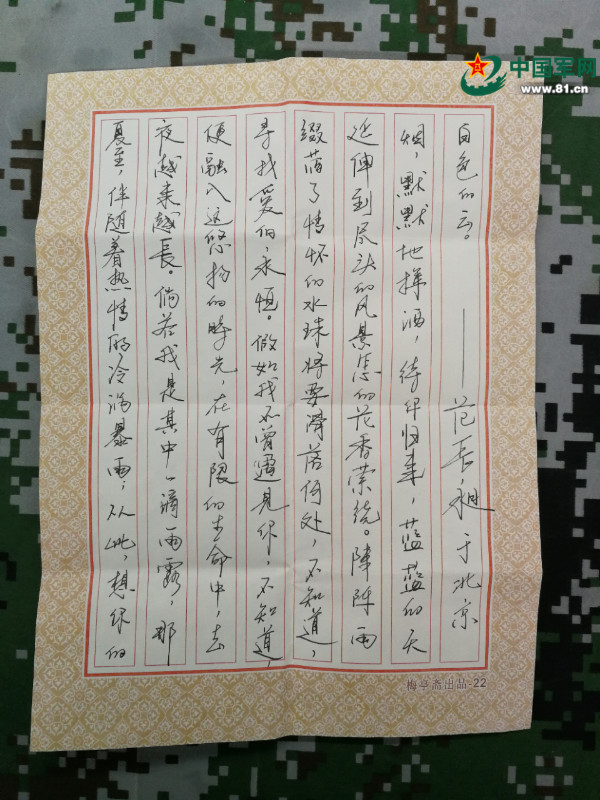 中国军网
www.81.cn
夏至，伴随着热情的冷滴暴雨，从此，想你的
夜越来越長。倘若我是其中一滴雨露，那
便融入这悠扬的時光，在有限的生命中，去
寻找爱的，永恒。假如我不曾遇見你，不知道，
缀落了情怀的水珠将要滑落何处，不知道，
延伸到尽头的风景怎的花香萦绕。陣阵雨
烟，默默地挥洒，待伊归来，蓝蓝的天
白色的云。
——范长昶于北京
梅亭斋出品-22